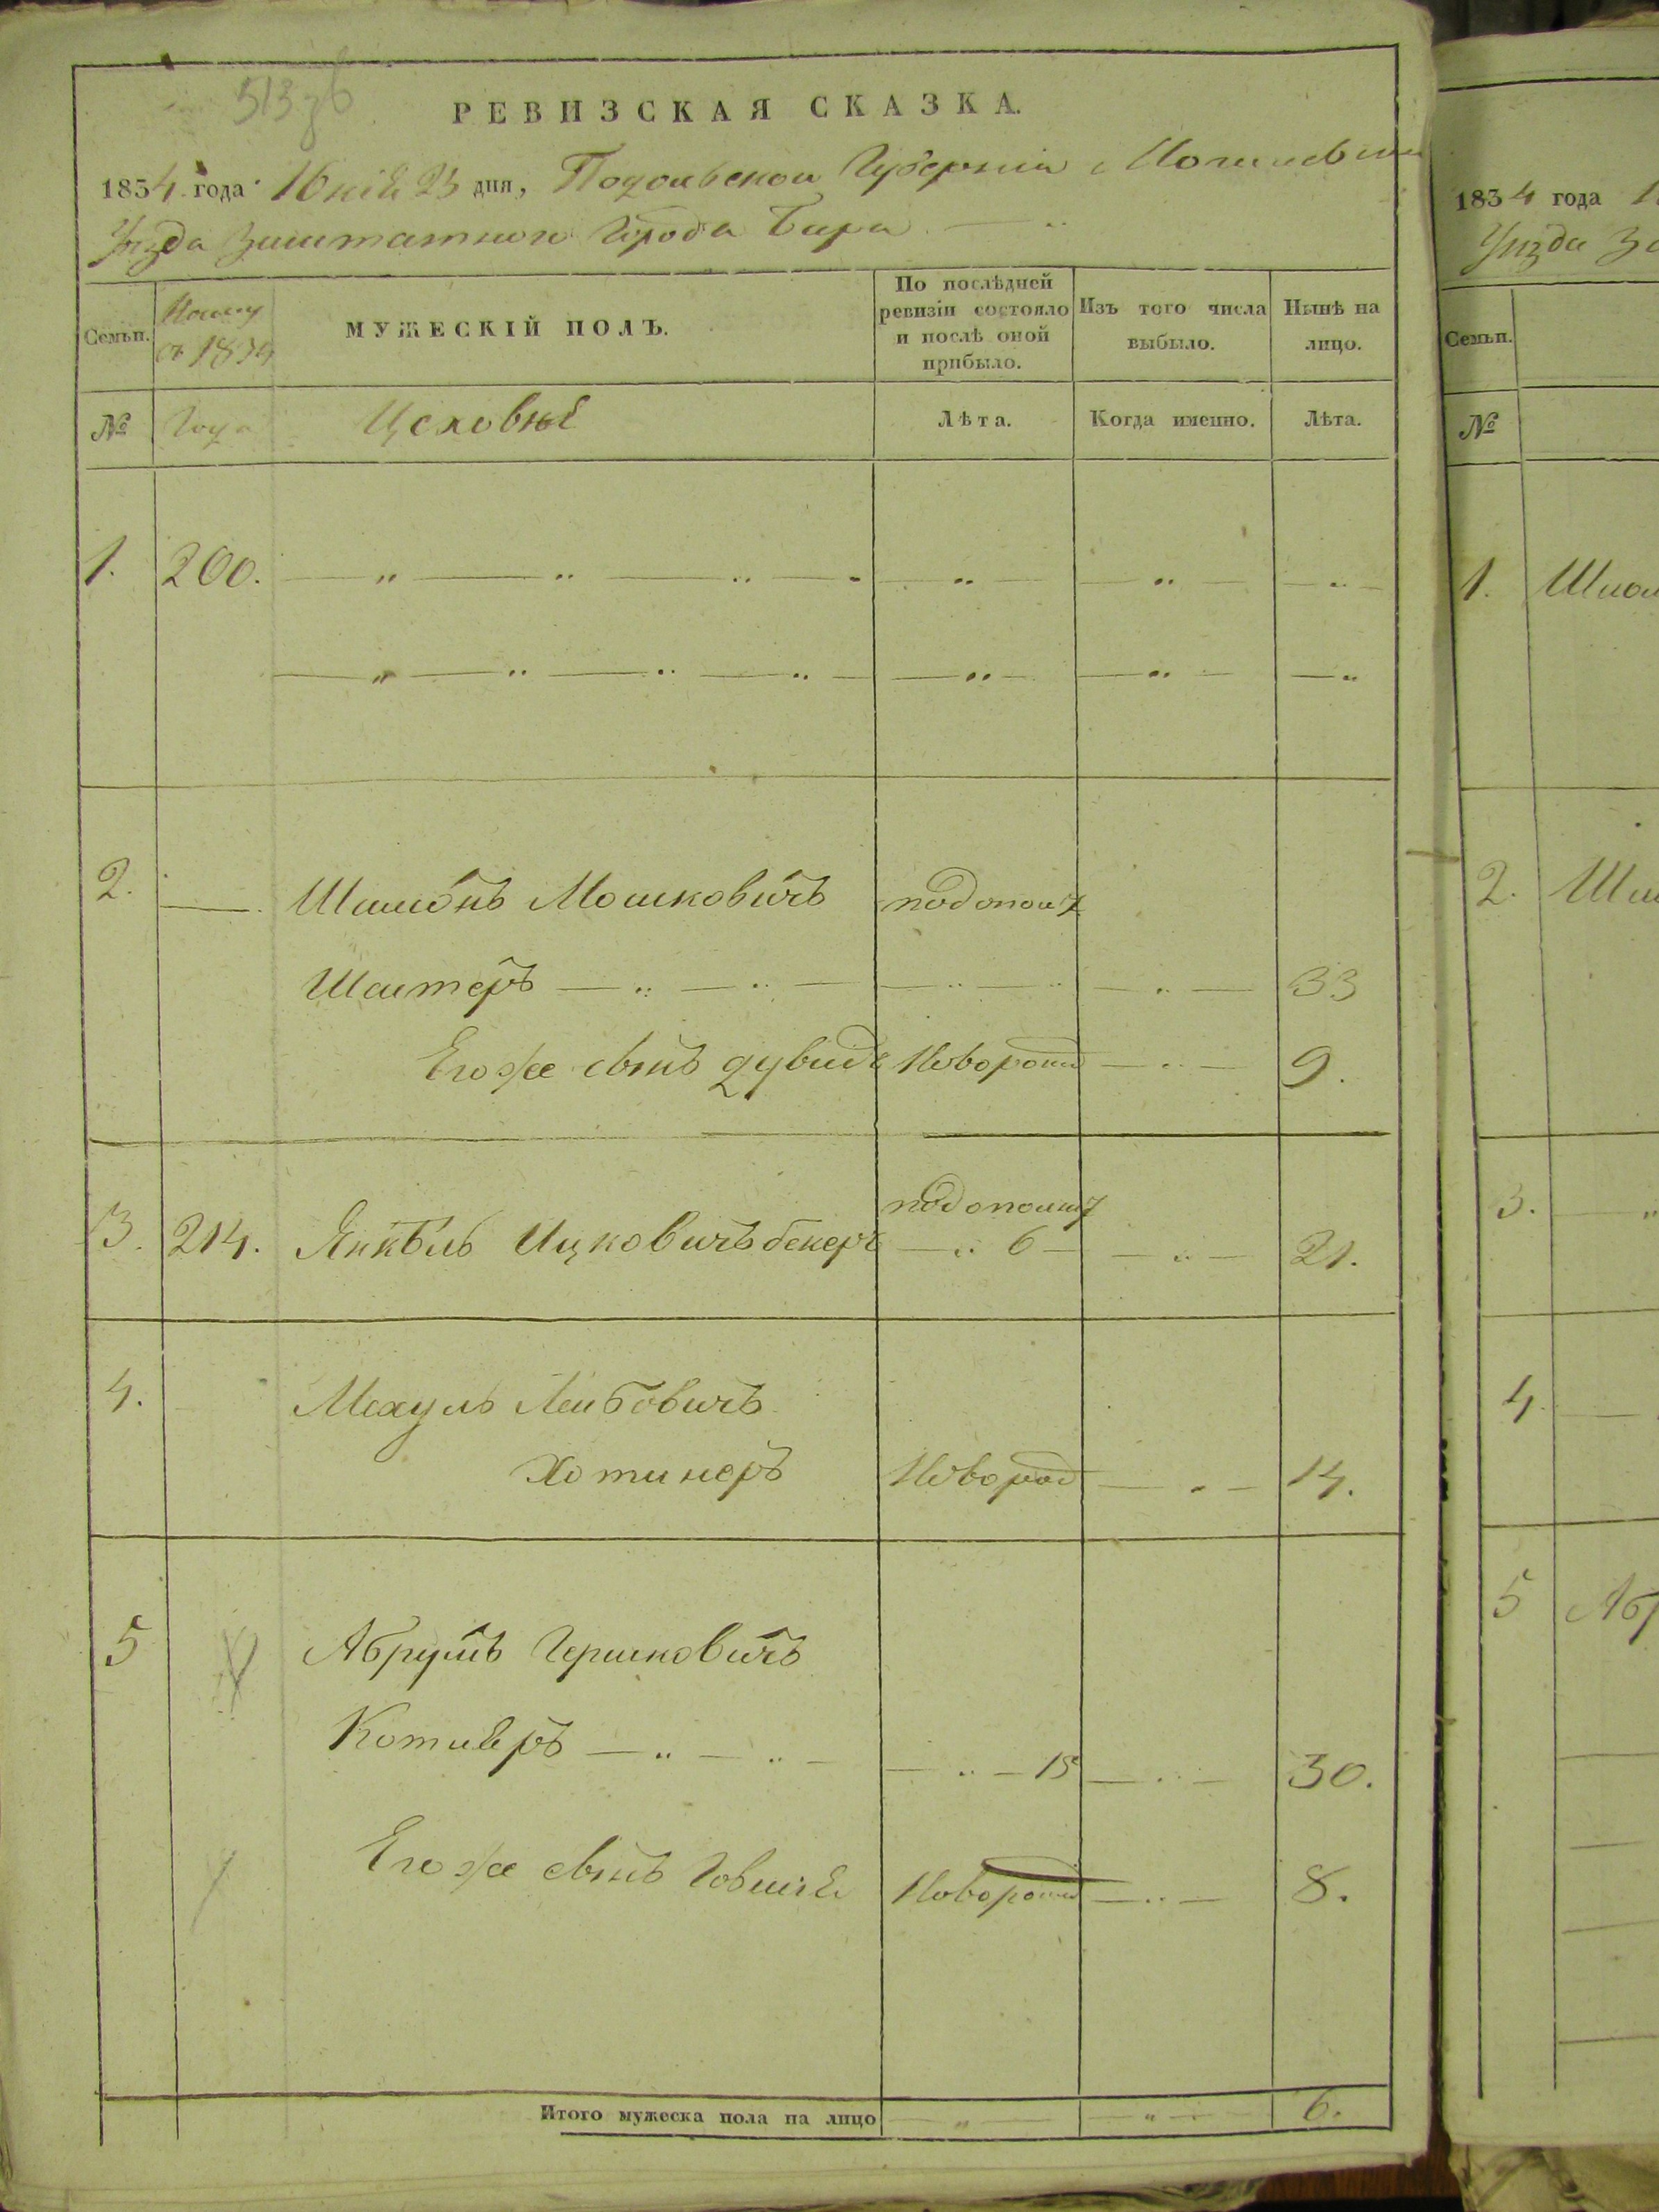 РЕВИЗСКАЯ СКАЗКА.
1854 года Іюніѣ 23 дня, Подольской Губерніи Могилевскаго
Уѣзда Заштатного Города Бара
Семьи.
МУЖЕСКІЙ ПОЛЪ.
По послѣдней ревизіи состояло и послѣ оной прибыло.
Изъ того числа выбыло.
Нынѣ на лицо.
№ Года Цеховые Лѣта. Когда именно. Лѣта.
1. 200.
2. Шимонъ Мошковичъ
Шмитеръ 33
Егоже сынъ Дувидъ Новорожд 9.
3. 214. Янкель Ицковичъ Бекеръ 6 21.
4. Мехуль Лейбовичъ
Хотинеръ Новорожд 14.
5 Абрумъ Гершковичъ
Котлеръ 15 30.
Егоже сынъ Новорожд 8.
Итого мужеска пола на лицо 6.
1834 года
Уѣзда
Семьи.
№
1.
2.
3.
4.
5